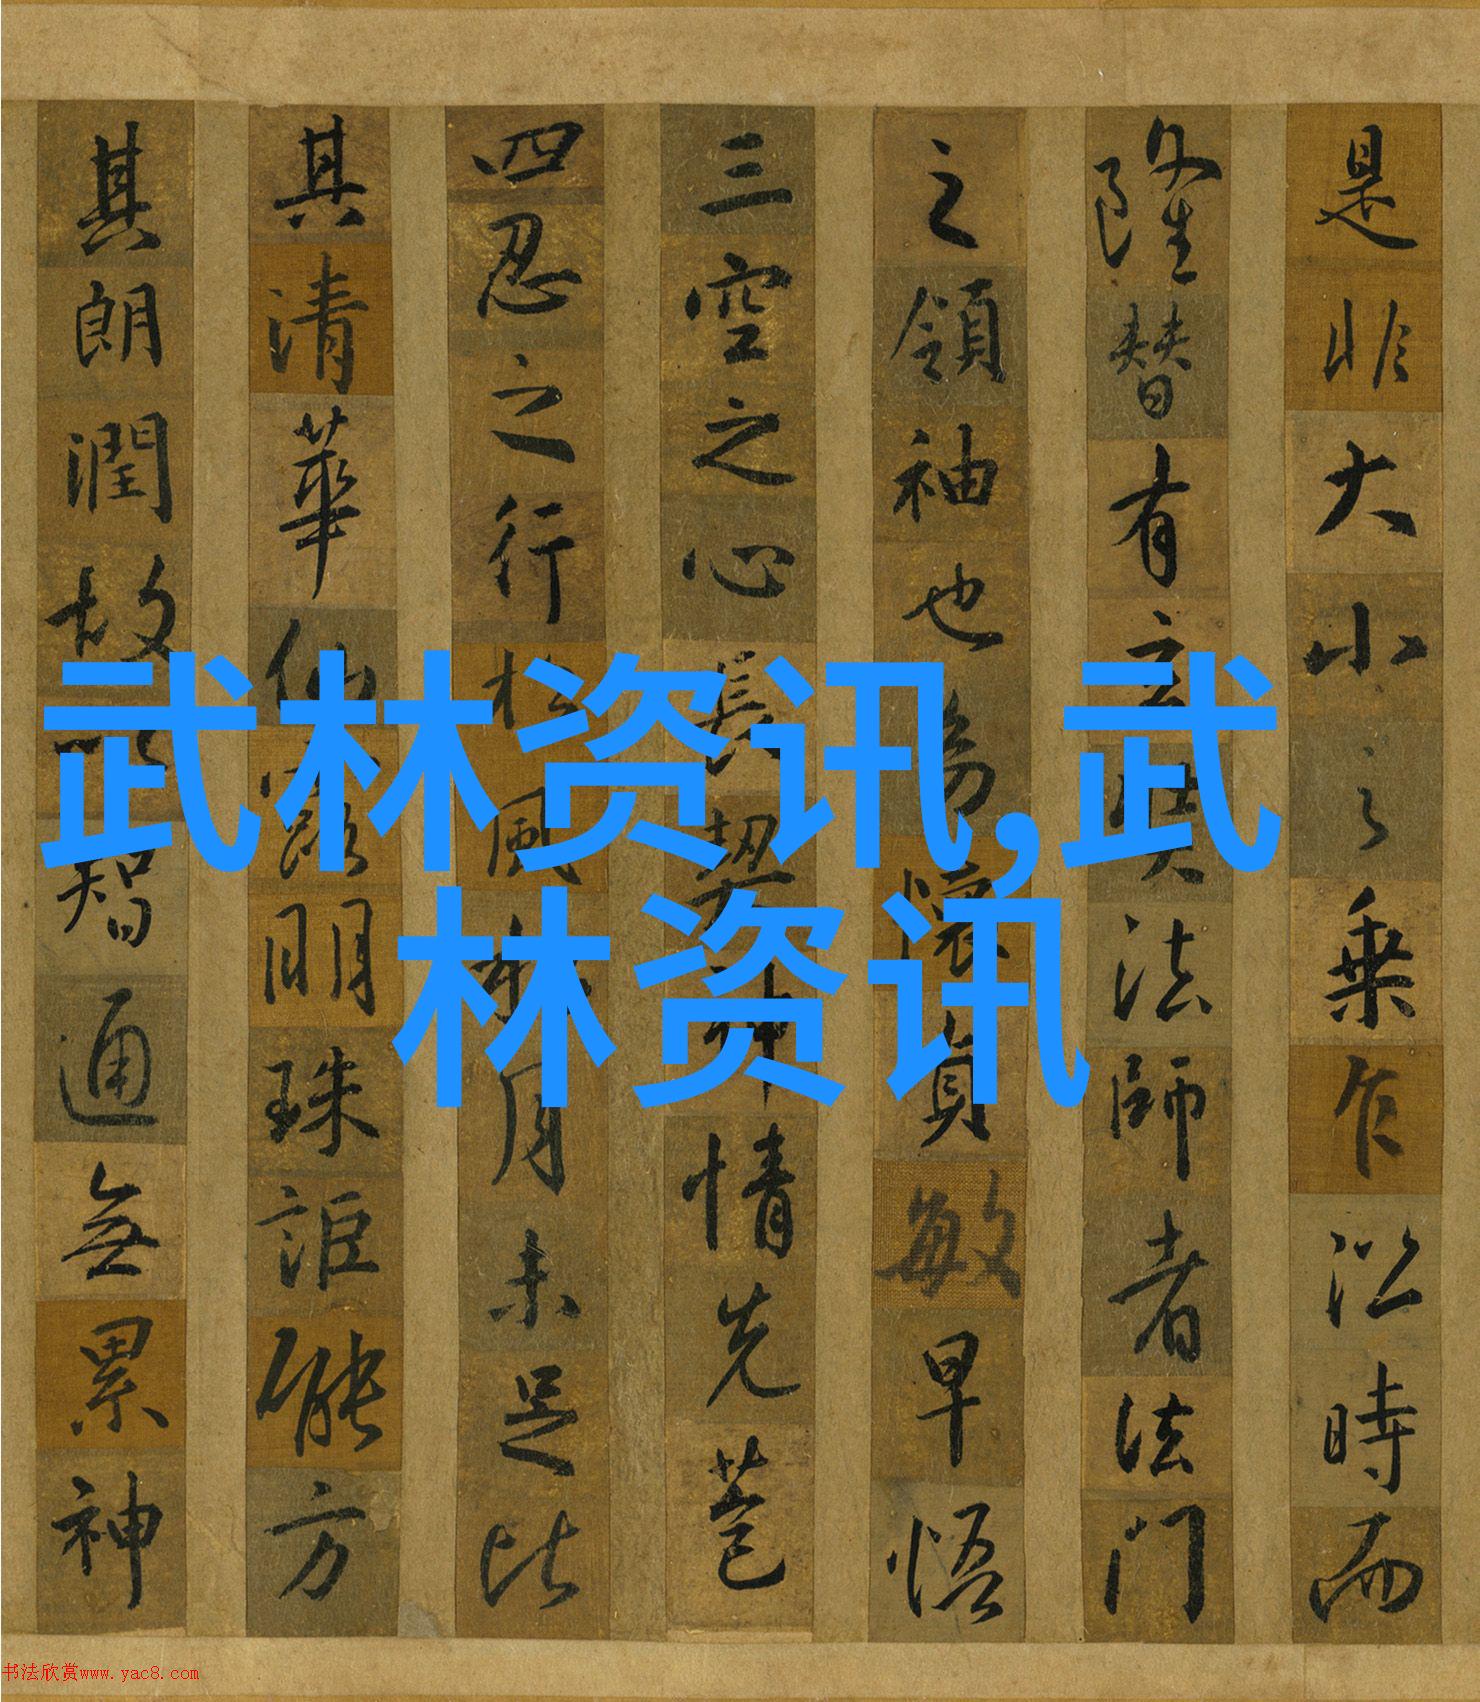 是非大小之乘乍沿時而
隆替有玄奘法師者法門
之領袖也幼懷貞敏早悟
三空之心長契神情先苞
四忍之行松風水月未足比
其清華仙露明珠詎能方
其朗潤故以智通無累神
武林资讯,武
林资讯
书法欣赏www.yac8.com